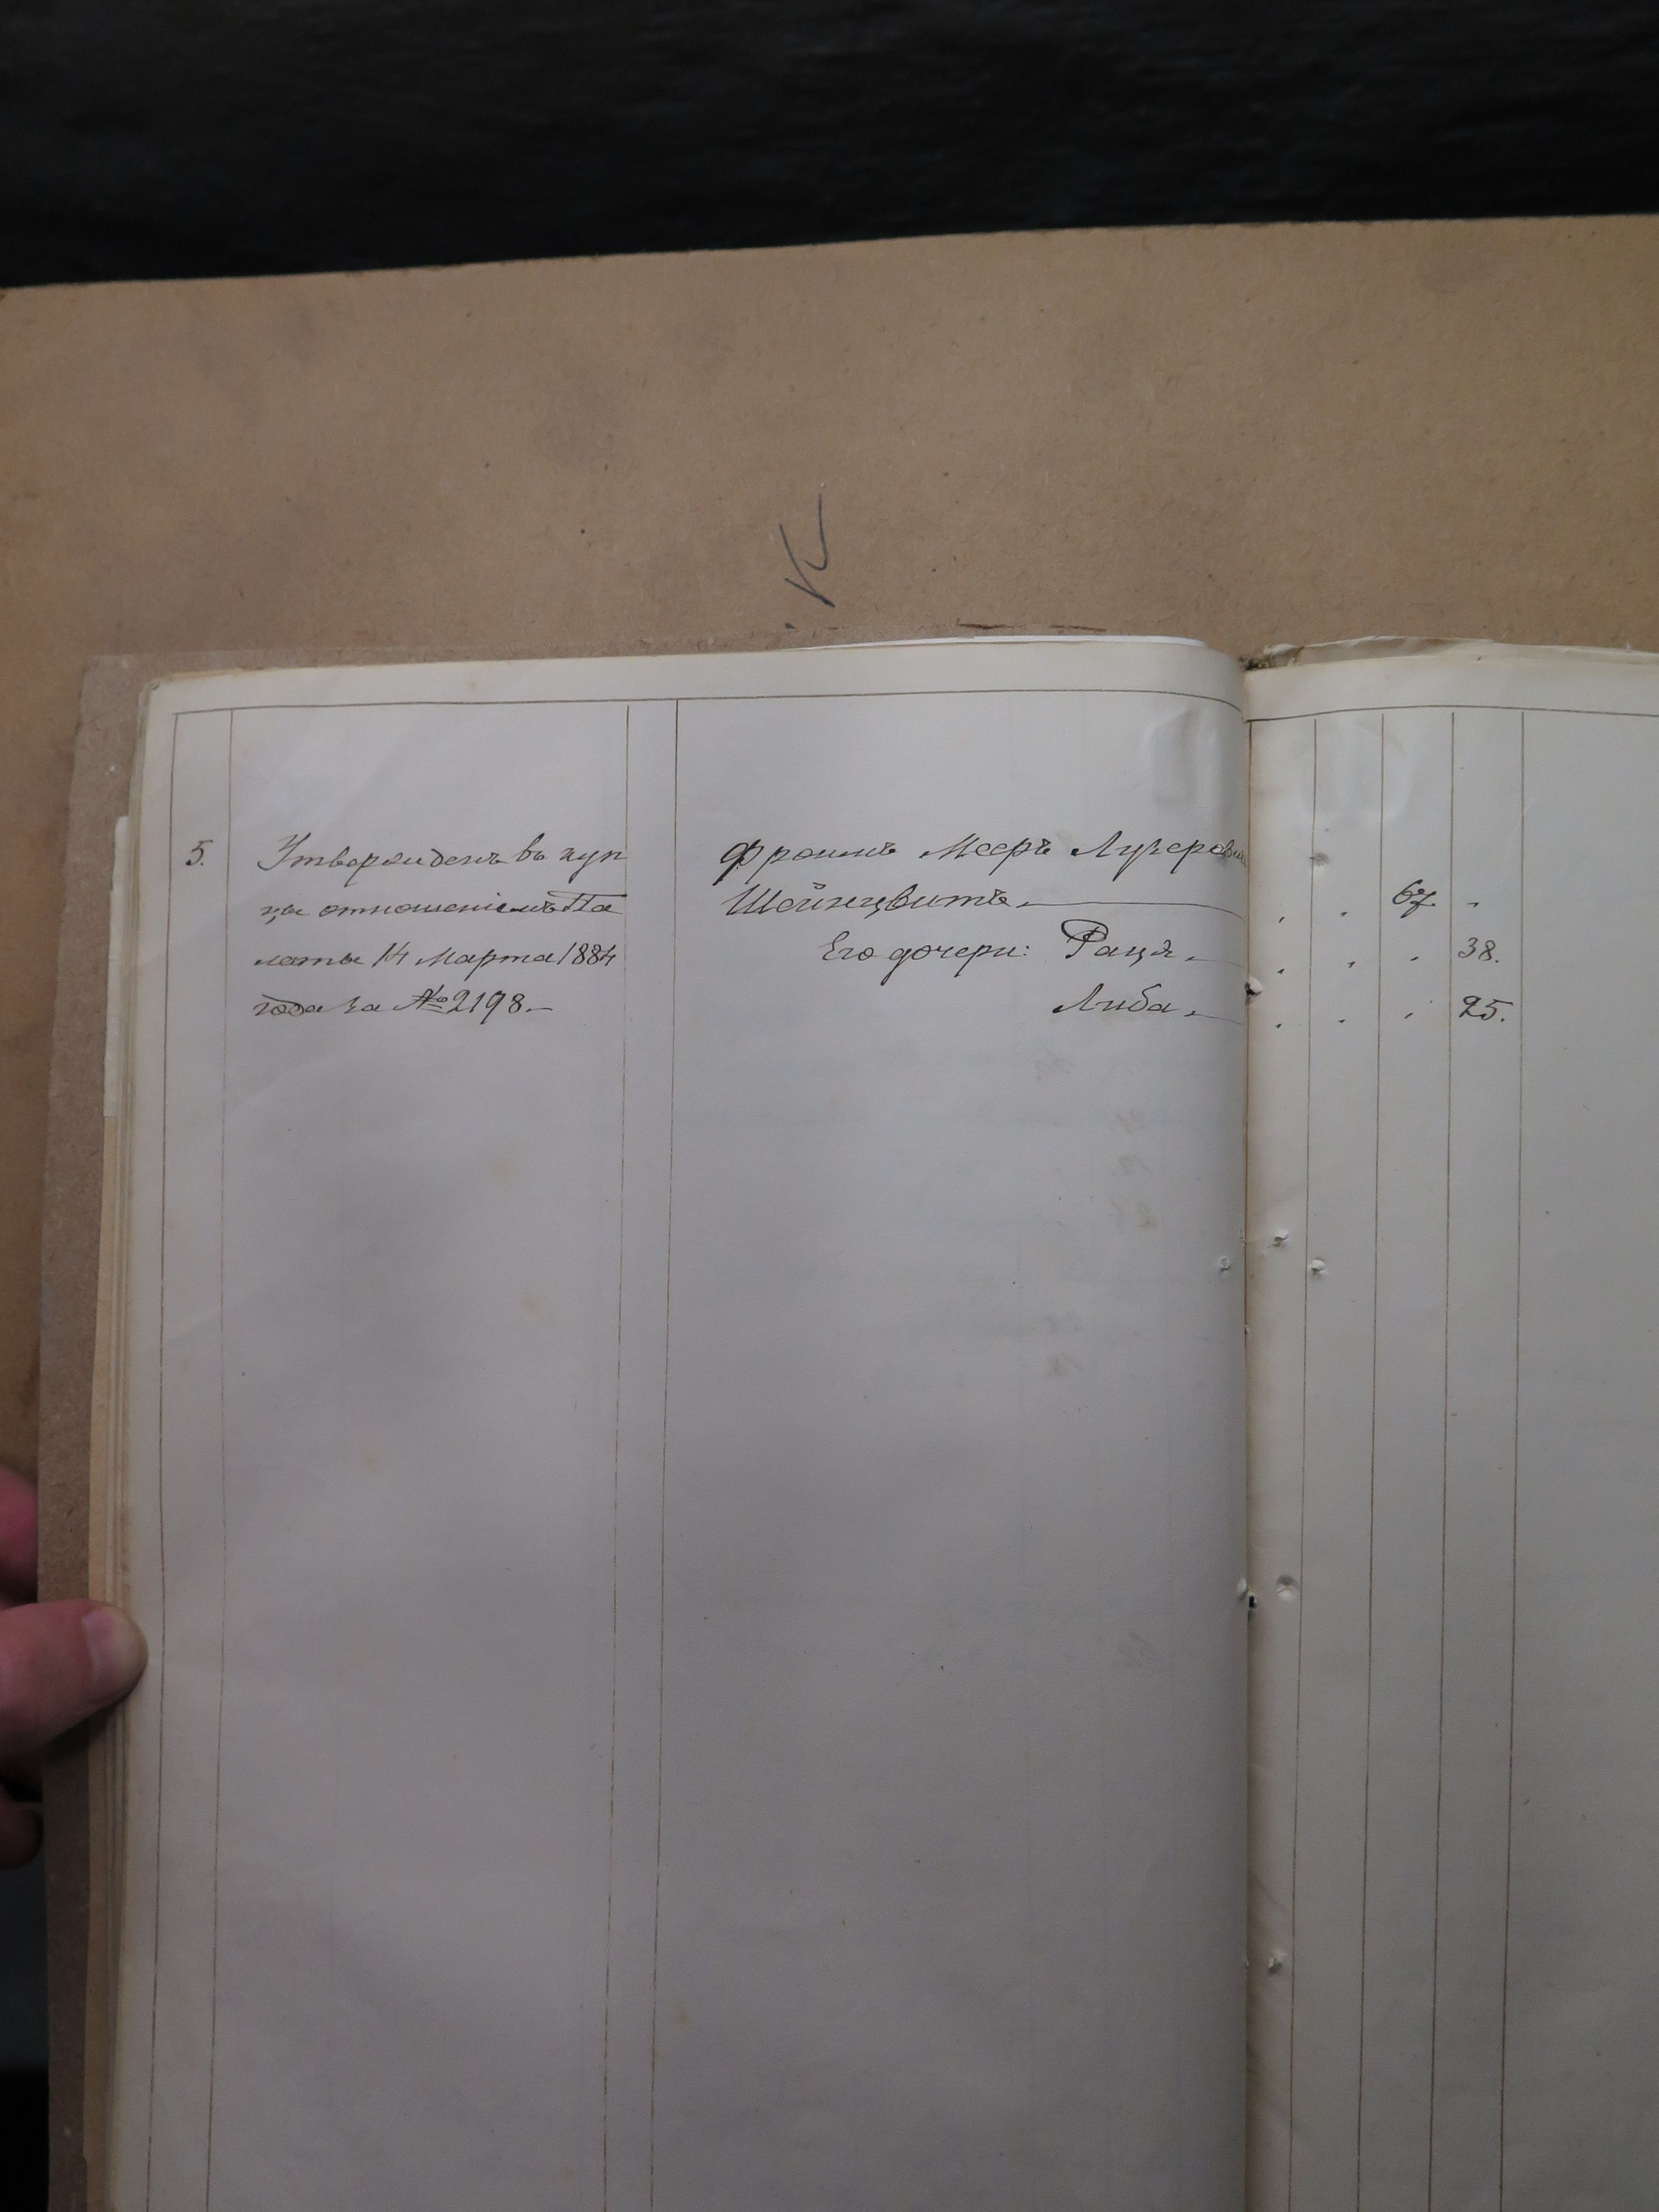 К
5.
Утвержденъ въ куп
цы отношеніемъ Па
латы 14 Марта 1884
года за № 2198.-
Фроимъ Мееръ Лузеровичъ
Шойнцвитъ. 67.
Его дочери: Раця. 38.
Либа. 25.